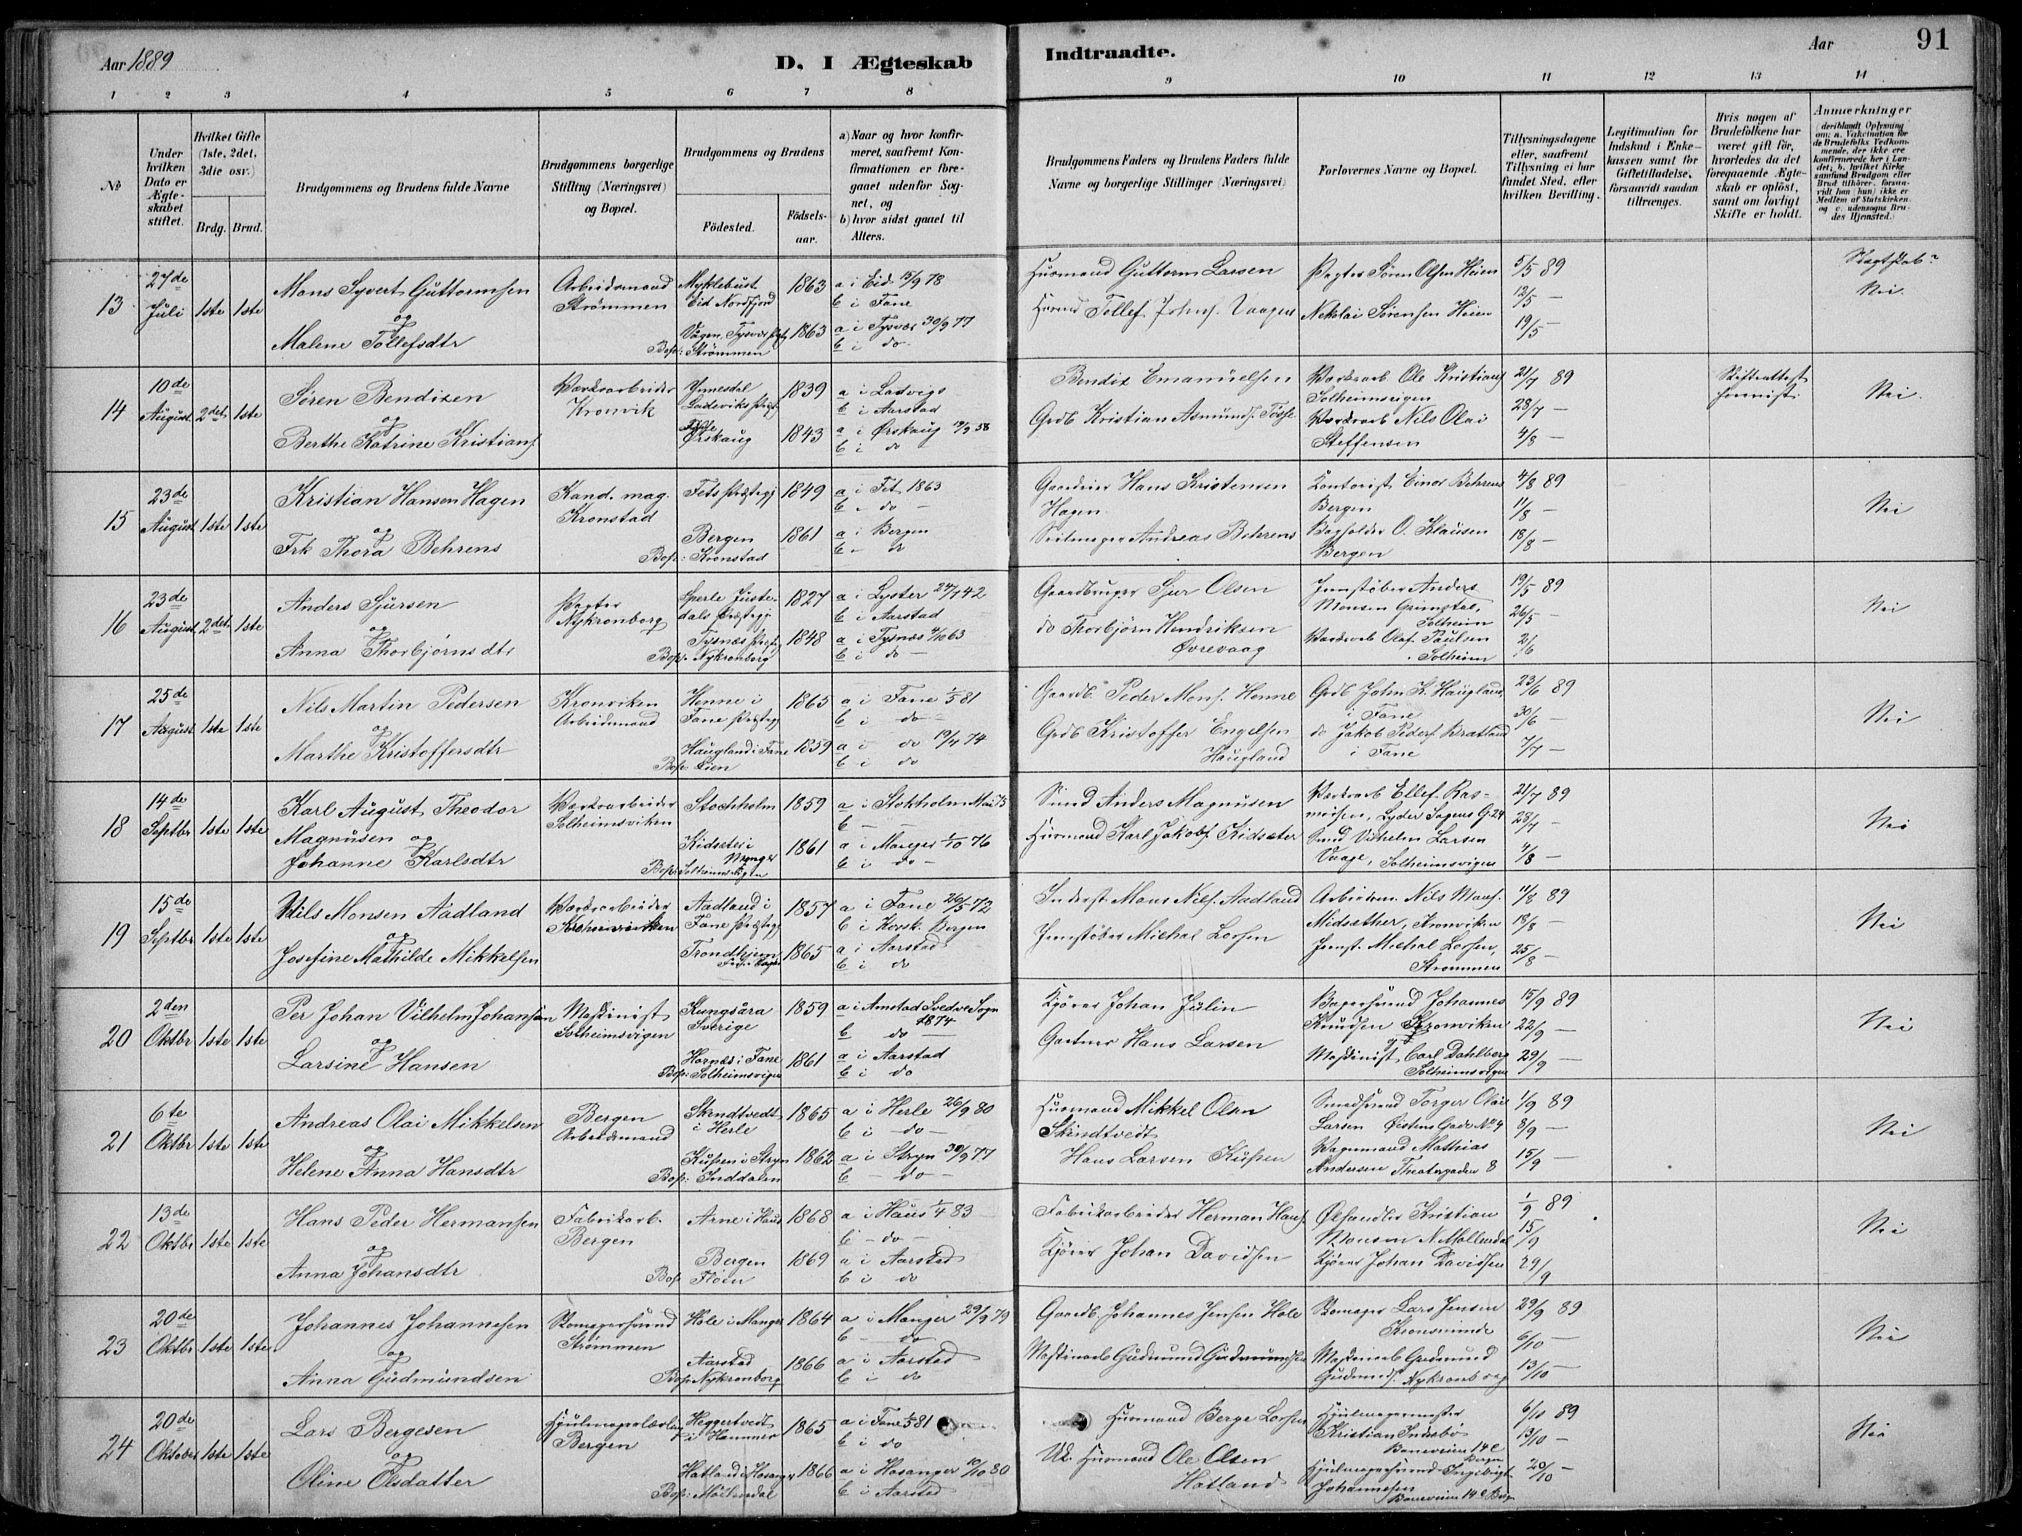 Aar 1889
D. I Ægteskab
Indtraadte.
Aar
91
1 2 3 4 5 6 7 8 9 10 11 12 13 14
No
Under hvilken Dato er Ægteskabet stiftet.
Hvilket Gifte (1ste, 2det, 3die osv.)
Brdg. Brud.
Brudgommens og Brudens fulde Navne
Brudgommens borgerlige Stilling (Næringsvei) og Bopæl.
Brudgommens og Brudens
Fødested.
Fødselsaar.
a) Naar og hvor konfirmeret, saafremt Konfirmationen er foregaaet udenfor Sognet, og
b) hvor sidst gaaet til Alters.
Brudgommens Faders og Brudens Faders fulde Navne og borgerlige Stillinger (Næringsvei)
Forlovernes Navne og Bopæl.
Tillysningsdagene eller, saafremt Tillysning ei har fundet Sted, efter hvilken Bevilling.
Legitimation for Indskud i Enkekassen samt for Giftetilladelse, forsaavidt saadan tiltrænges.
Hvis nogen af Brudefolkene har været gift før, hvorledes da det foregaaende Ægteskab er opløst, samt om lovligt Skifte er holdt.
Anmerkninger
13 27de Juli 1ste 1ste
Mons Syvert Guttormsen
og
Malene Tollefsdtr
Arbeidsmand
Strømmen
Myklebust
Eid Nordfjord
1863
a i Eid 15/9 78
b i Fane
Vågen, Tysvær
Bop: Strømmen
1863
a i Tysvær 30/9 77
b i do
Husmand Guttorm Larsen
Pagter Søren Olsen Heien
Nikolai Sørensen Heien
5/5 89
12/5 —
19/5 —
Nei.
14 10de August 2det 1ste
Søren Bendixen
og
Berthe Katrine Kristians.
Værksarbeider
Kronvik
1839
a i Ladvigs
b i Aarstad
Ørskaug
1843
a i Ørskaug 19/9 58
b i do
Bendix Emanuelsen
Værksarb Ole Kristians
Solheimsvigen
Værksarb Nils Olai
Steffensen
21/7 89
28/7 —
4/8 —
Nei.
15 23de August 1ste 1ste
Kristian Hansen Hagen
og
Frk Thora Behrens
Kand. mag.
Kronstad
Fets Præstegj
1849
a i Fet 1863
b i do —
Bergen
Bop: Kronstad
1861
a i Bergen
Gaardeier Hans Kristensen
Hagen
Seilmager Andreas Behrens
Kontorist Einar Behrens
Bergen
Bogholder O. Klausen
Bergen
4/8 89
11/8 —
18/8 —
Nei
16 23de August 2det 1ste
Anders Sjursen
og
Anna Thorbjørnsdtr
Pagter
Nykronborg
Sperle Justedals Præstegj
1827
a i Lyster 24/7 42
b i Aarstad
Tysnæs Præstegj
Bop: Nykronborg
1848
a i Tysnæs
b i do —
Gaardbruger Sjur Olsen
do Thorbjørn Hendriksen
Øvrevaag
Jernstøber Anders
Monsen Grimstad,
Solheim
Værksarb Olaf Paulsen
Solheim
19/5 89
26/5 —
2/6
Nei
17 25de August 1ste 1ste
Nils Martin Pedersen
og
Marthe Kristoffersdtr
Kronviken
Arbeidsmand
Henne i
Fane Præstegj
1865
a i Fane 1/5 81
b i do
Haugland i Fane
Bop: Lien
1859
a i do 19/4 74
b i do
Gaardb. Peder Mons. Henne
Grdb Kristoffer Engelsen
Haugland
Grdb John K. Haugland
i Fane
do Jakob Peders. Bratland
i Fane
23/6 89
30/6 —
7/7 —
Nei
18 14de Septbr 1ste 1ste
Karl August Theodor
Magnusen og
Johanne Karlsdtr
Værksarbeider
Solheimsviken
Stockholm
1859
a i Stokholm Mai 75
b — —
Kidsæter i
Manger
Bop: Solheimsvigen
1861
a i Manger 1/10 76
b i do —
Smed Anders Magnusen
Husmand Karl Jakobs. Kidsæter
Værksarb Ellef Rasmussen, Lyder Sagens G. 24
Smed Vilhelm Larsen
Vaage, Solheimsvigen
21/7 89
28/7 —
4/8 —
Nei
19 15de Septbr 1ste 1ste
Nils Monsen Aadland
og
Josefine Mathilde Mikkelsen
Værksarbeider
Kronviken
Aadland i
Fane Præstegj
1857
a i Fane 26/5 72
b i Korsk. Bergen
Trondhjem
1865
a i Aarstad
b i do
Inderst Mons Nils. Aadland
Jernstøber Michal Larsen
Arbeidsm. Nils Mons.
Midsæther, Kronviken
Jernst. Michal Larsen,
Strømmen
11/8 89
18/8 —
25/8 —
Nei
20 2den Oktbr 1ste 1ste
Per Johan Vilhelm Johansson
og
Larsine Hansen
Maskinist
Solheimsvigen
Kungsåra
Sverige
1859
1874
b do —
Hornæs i Fane
Bop: Solheimsvigen
1861
a i Aarstad
b i do
Kjører Johan Julin
Gartner Hans Larsen
Bagersvend Johannes
Knudsen Kronviken
og
Maskinist Carl Dahlberg
Solheimsvigen
15/9 89
22/9 —
29/9 —
Nei
21 6te Oktbr 1ste 1ste
Andreas Olai Mikkelsen
og
Helene Anna Hansdtr
Bergen
Arbeidsmand
Skindtvedt
i Herle
1865
a i Herle 26/9 80
b i do —
i Stryn
Bop: Inddalen
1862
a i Stryn 30/9 77
b — do —
Husmand Mikkel Olsen
Skindtvedt
Hans Larsen
Smedsvend Torger Olai
Larsen Øistens Gade No 4
Vognmand Mathias
Andersen Theatergaden 8
1/9 89
8/9 —
15/9 —
Nei
22 13de Oktbr 1ste 1ste
Hans Peder Hermansen
og
Anna Johansdtr
Fabrikarb.
Bergen
Arne i Haus
1868
a i Haus 1/4 83
b — do —
Bergen
Bop: Fløen
1869
a i Aarstad
b i do
Fabrikarbeider Herman Hans.
Kjører Johan Davidsen
Ølhandler Kristian
Monsen N. Møllendal
Kjører Johan Davidsen
1/9 89
15/9
29/9
Nei
23 20de Oktbr 1ste 1ste
Johannes Johannesen
og
Anna Gudmundsen
Strømmen
Hole i Manger
1864
a i Manger 29/9 79
b — do
Aarstad
Bop: Nykronborg
1866
a i Aarstad
b i do
Gaardb. Johannes Jensen Hole
Maskinarb Gudmund Gudmundsen
Lars Jensen
Kronsminde
Maskinarb Gudmund
Gudmunds. Nykronborg
29/9 89
6/10 —
13/10 —
Nei
24 20de Oktober 1ste 1ste
Lars Bergesen
og
Oline Olsdatter
Hjulmagerlærling
Bergen
Heggertvedt
i Hammer
1865
a i Fane 1/5 81
b i do
Hatland i Hosanger
Bop: Møllendal
1866
a i Hosanger 10/10 80
b i Aarstad
Husmand Berge Larsen
Husmand Ole Olsen
Hatland
Hjulmagermester
Kristian Indrebø
Bergen
Hjulmagersvend Ingebrigt
Johannesen
6/10 89
13/10 —
20/10 —
Nei